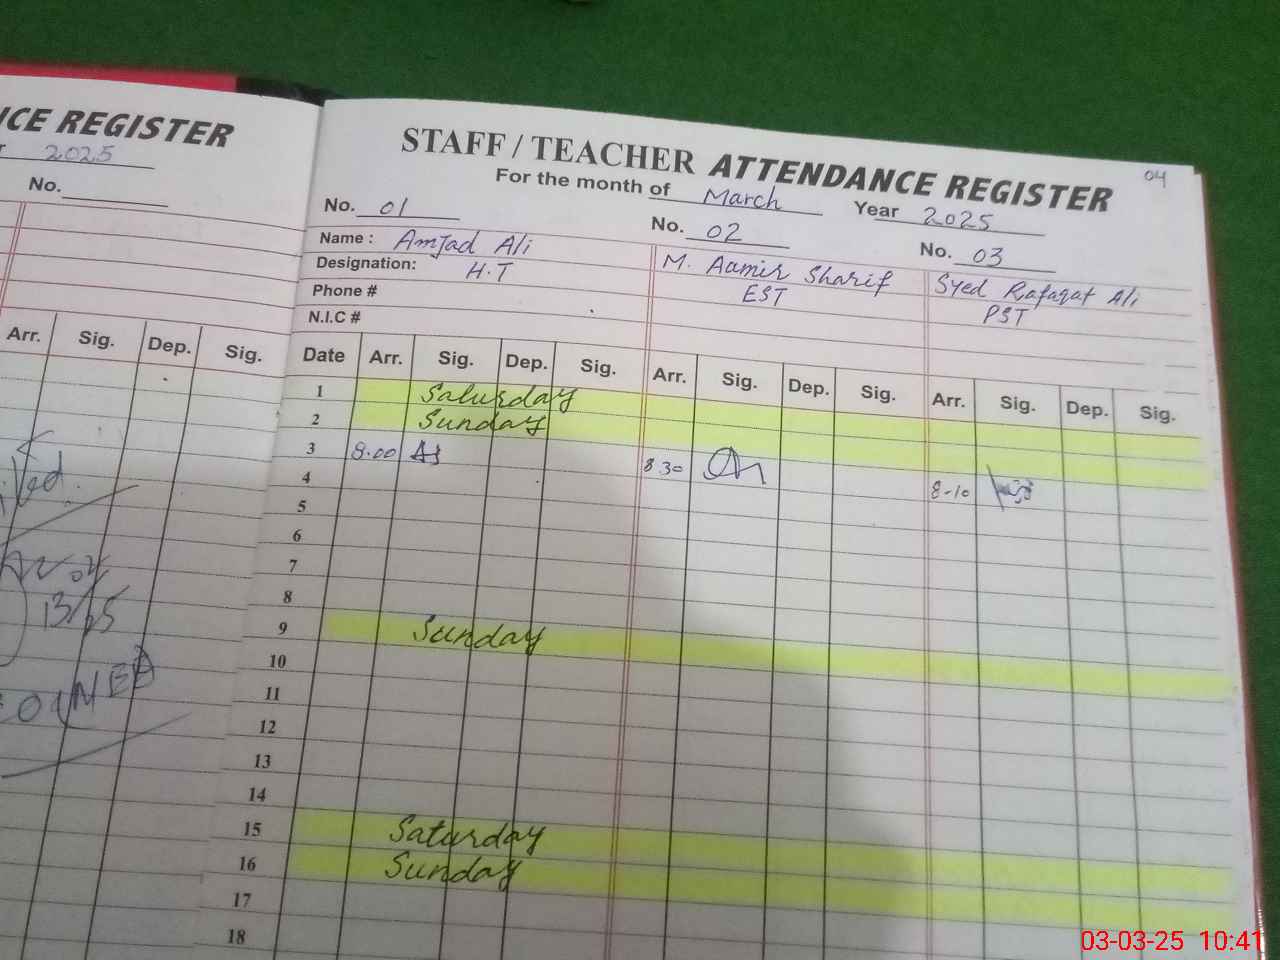 ICE REGISTER
2025
No.
Arr. Sig. Dep. Sig.
13/25
04
STAFF / TEACHER ATTENDANCE REGISTER
For the month of March Year 2025
No. 01 No. 02 No. 03
Name : Amjad Ali M. Aamir Sharif Syed Rafaqat Ali
Designation: H.T EST PST
Phone #
N.I.C #
Date Arr. Sig. Dep. Sig. Arr. Sig. Dep. Sig. Arr. Sig. Dep. Sig.
1 Saturday
2 Sunday
3 8.00 8.30 8-10
4
5
6
7
8
9 Sunday
10
11
12
13
14
15 Saturday
16 Sunday
17
18
03-03-25 10:41